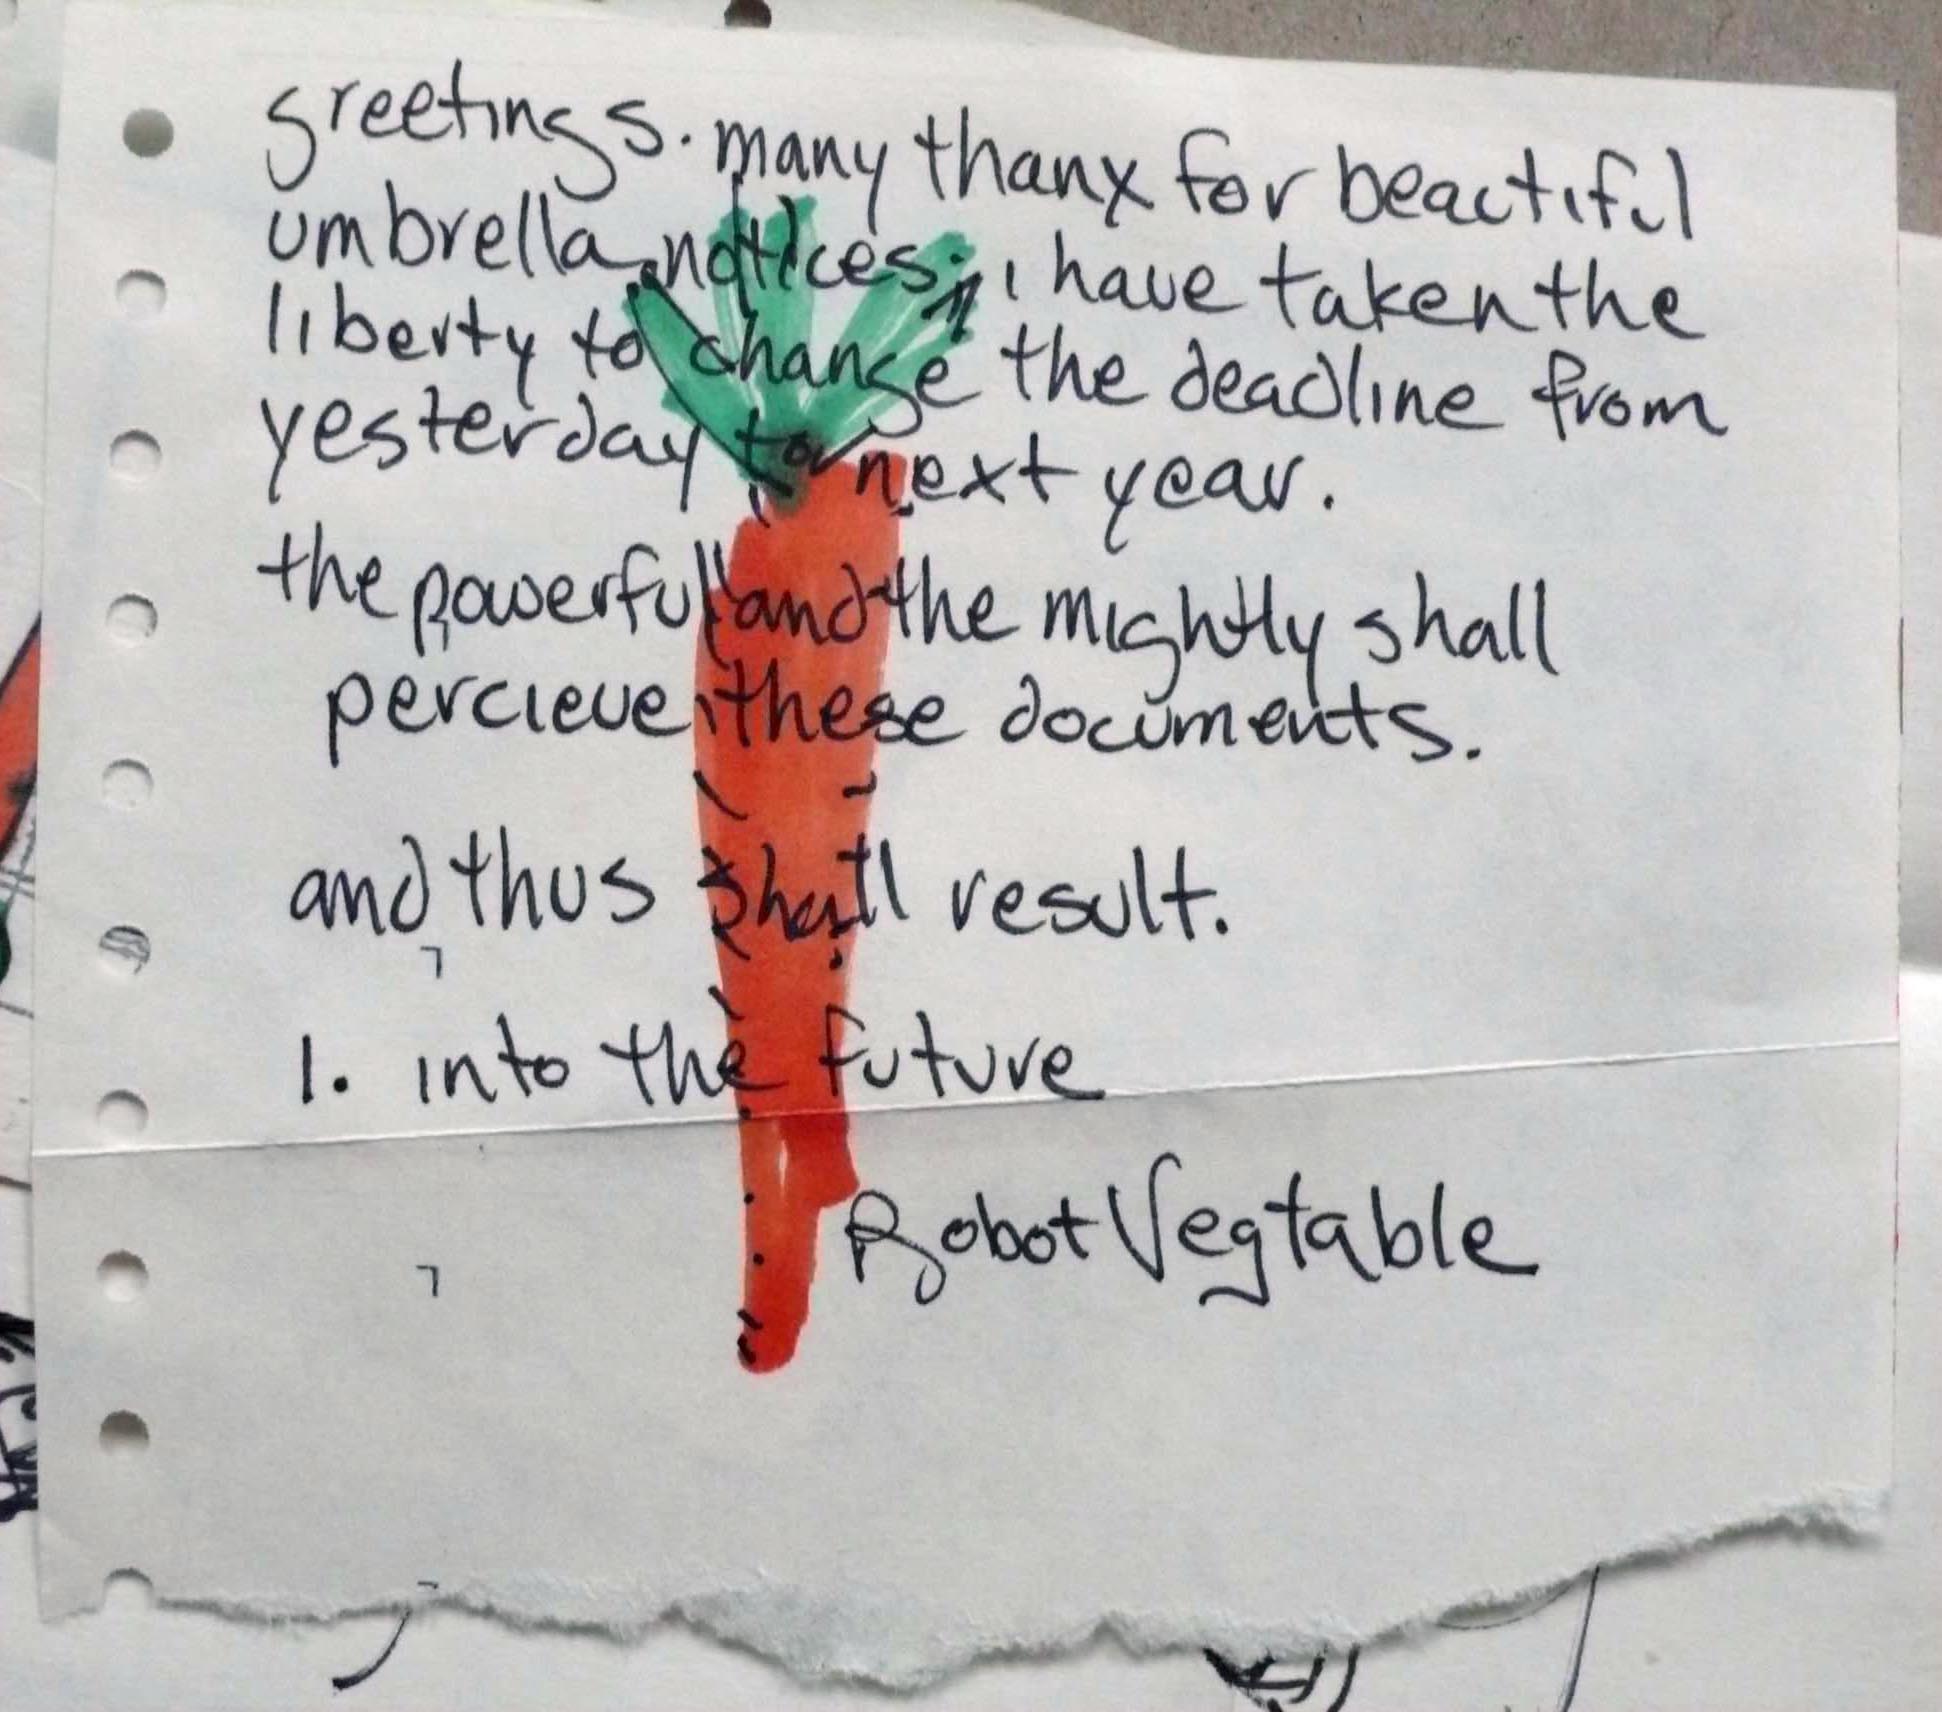 greetings. many thanx for beautiful
umbrella notices, i have taken the
liberty to change the deadline from
yesterday to next year.
the powerful and the mightly shall
percieve these documents.
and thus shall result.
1. into the future
Robot Vegtable